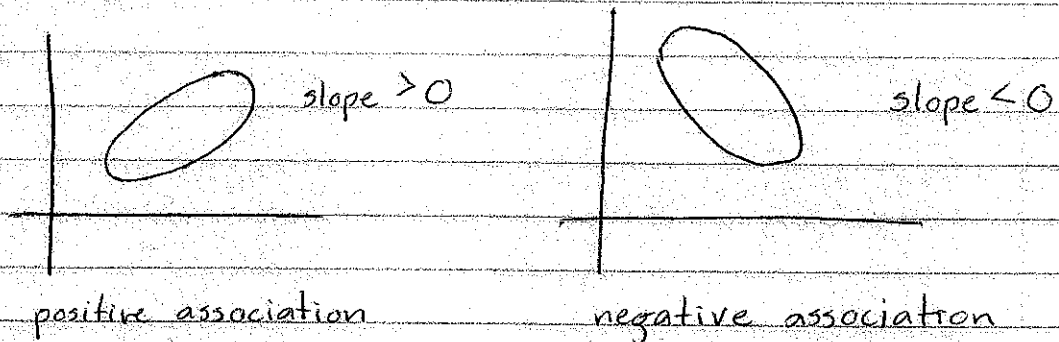 slope > 0
slope < 0
positive association
negative association